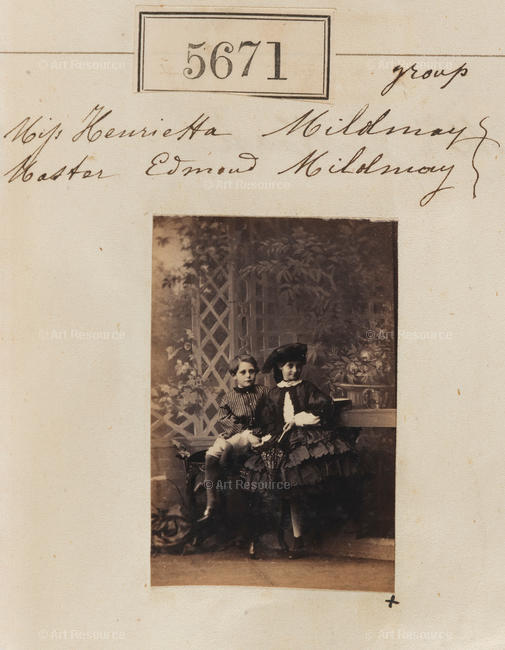 5671
group
Miss Henrietta Mildmay
Master Edmond Mildmay
© Art Resource
© Art Resource
© Art Resource
© Art Resource
© Art Resource
© Art Resource
© Art Resource
© Art Resource
© Art Resource
© Art Resource
© Art Resource